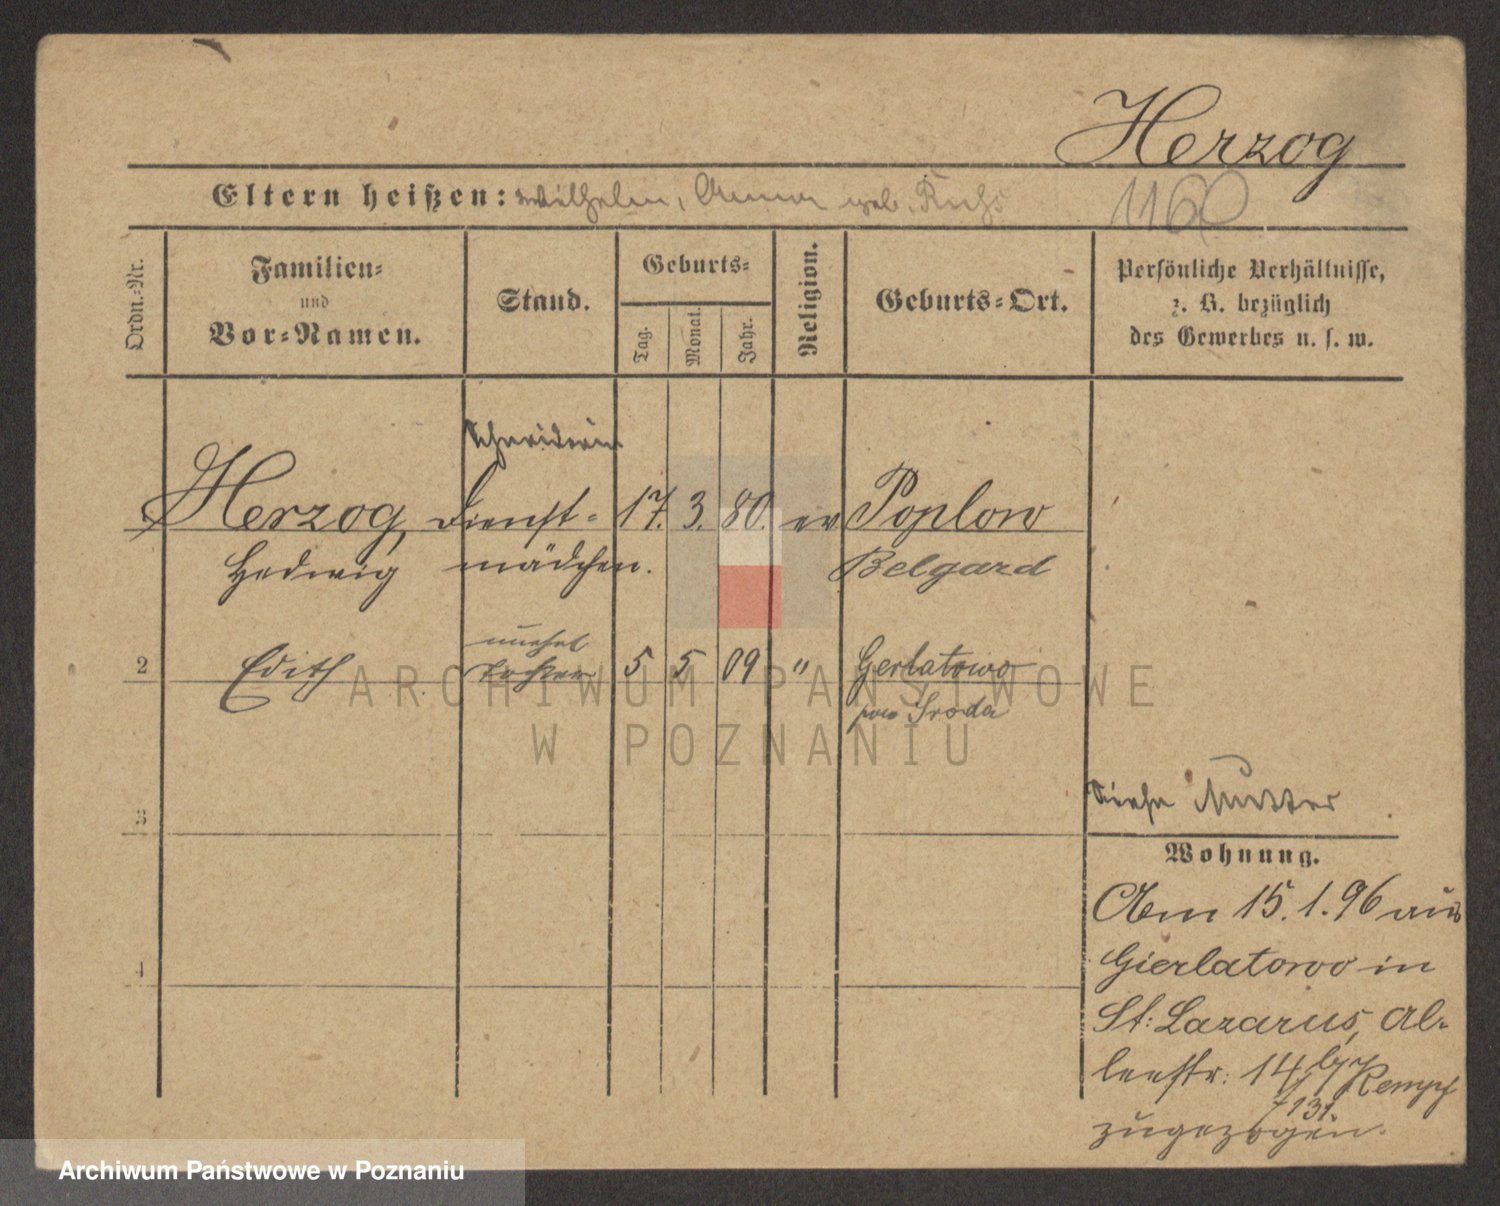 Herzog
Eltern heißen: Wilhelm, Anna geb. Kuhs
1160
Ordn.-Nr.
Familien-
und
Vor-Namen.
Stand.
Geburts-
Tag.
Monat.
Jahr.
Religion.
Geburts-Ort.
Persönliche Verhältnisse,
z. B. bezüglich
des Gewerbes u. s. w.
Schneiderin
Herzog, Dienst- 17. 3. 80. ev Poplow
Hedwig mädchen. Belgard
unehel
2 Edith Tochter 5 5 09 " Gerlatowo
Sroda
3
Siehe Mutter
Wohnung.
Am 15.1.96 aus
4
Gierlatowo in
St: Lazarus, Al-
leestr: 14 b/ Kempf
zugezogen.
ARCHIWUM PAŃSTWOWE
W POZNANIU
Archiwum Państwowe w Poznaniu